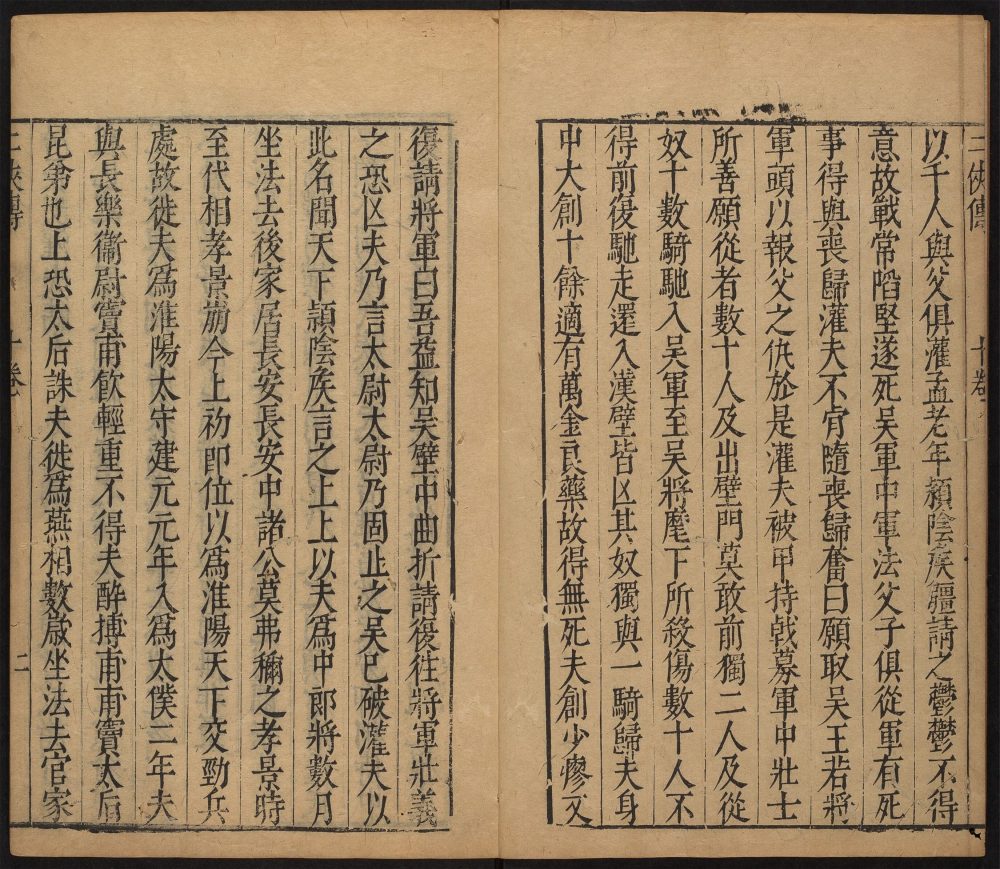 二俠傳 十卷
以千人與父俱灌孟老年潁陰矦彊請之鬱鬱不得
意故戰常陷堅遂死吳軍中軍法父子俱從軍有死
事得與喪歸灌夫不肯隨喪歸奮曰願取吳王若將
軍頭以報父之仇於是灌夫被甲持戟募軍中壯士
所善願從者數十人及出壁門莫敢前獨二人及從
奴十數騎馳入吳軍至吳將麾下所殺傷數十人不
得前復馳走還入漢壁皆亾其奴獨與一騎歸夫身
中大創十餘適有萬金良藥故得無死夫創少瘳又
復請將軍曰吾益知吳壁中曲折請復往將軍壯義
之恐亾夫乃言太尉太尉乃固止之吳已破灌夫以
此名聞天下潁陰矦言之上上以夫爲中郎將數月
坐法去後家居長安長安中諸公莫弗稱之孝景時
至代相孝景崩今上初即位以爲淮陽天下交勁兵
處故徙夫爲淮陽太守建元元年入爲太僕二年夫
與長樂衞尉竇甫飲輕重不得夫醉搏甫甫竇太后
昆弟也上恐太后誅夫徙爲燕相數歲坐法去官家
二俠傳 十卷 二